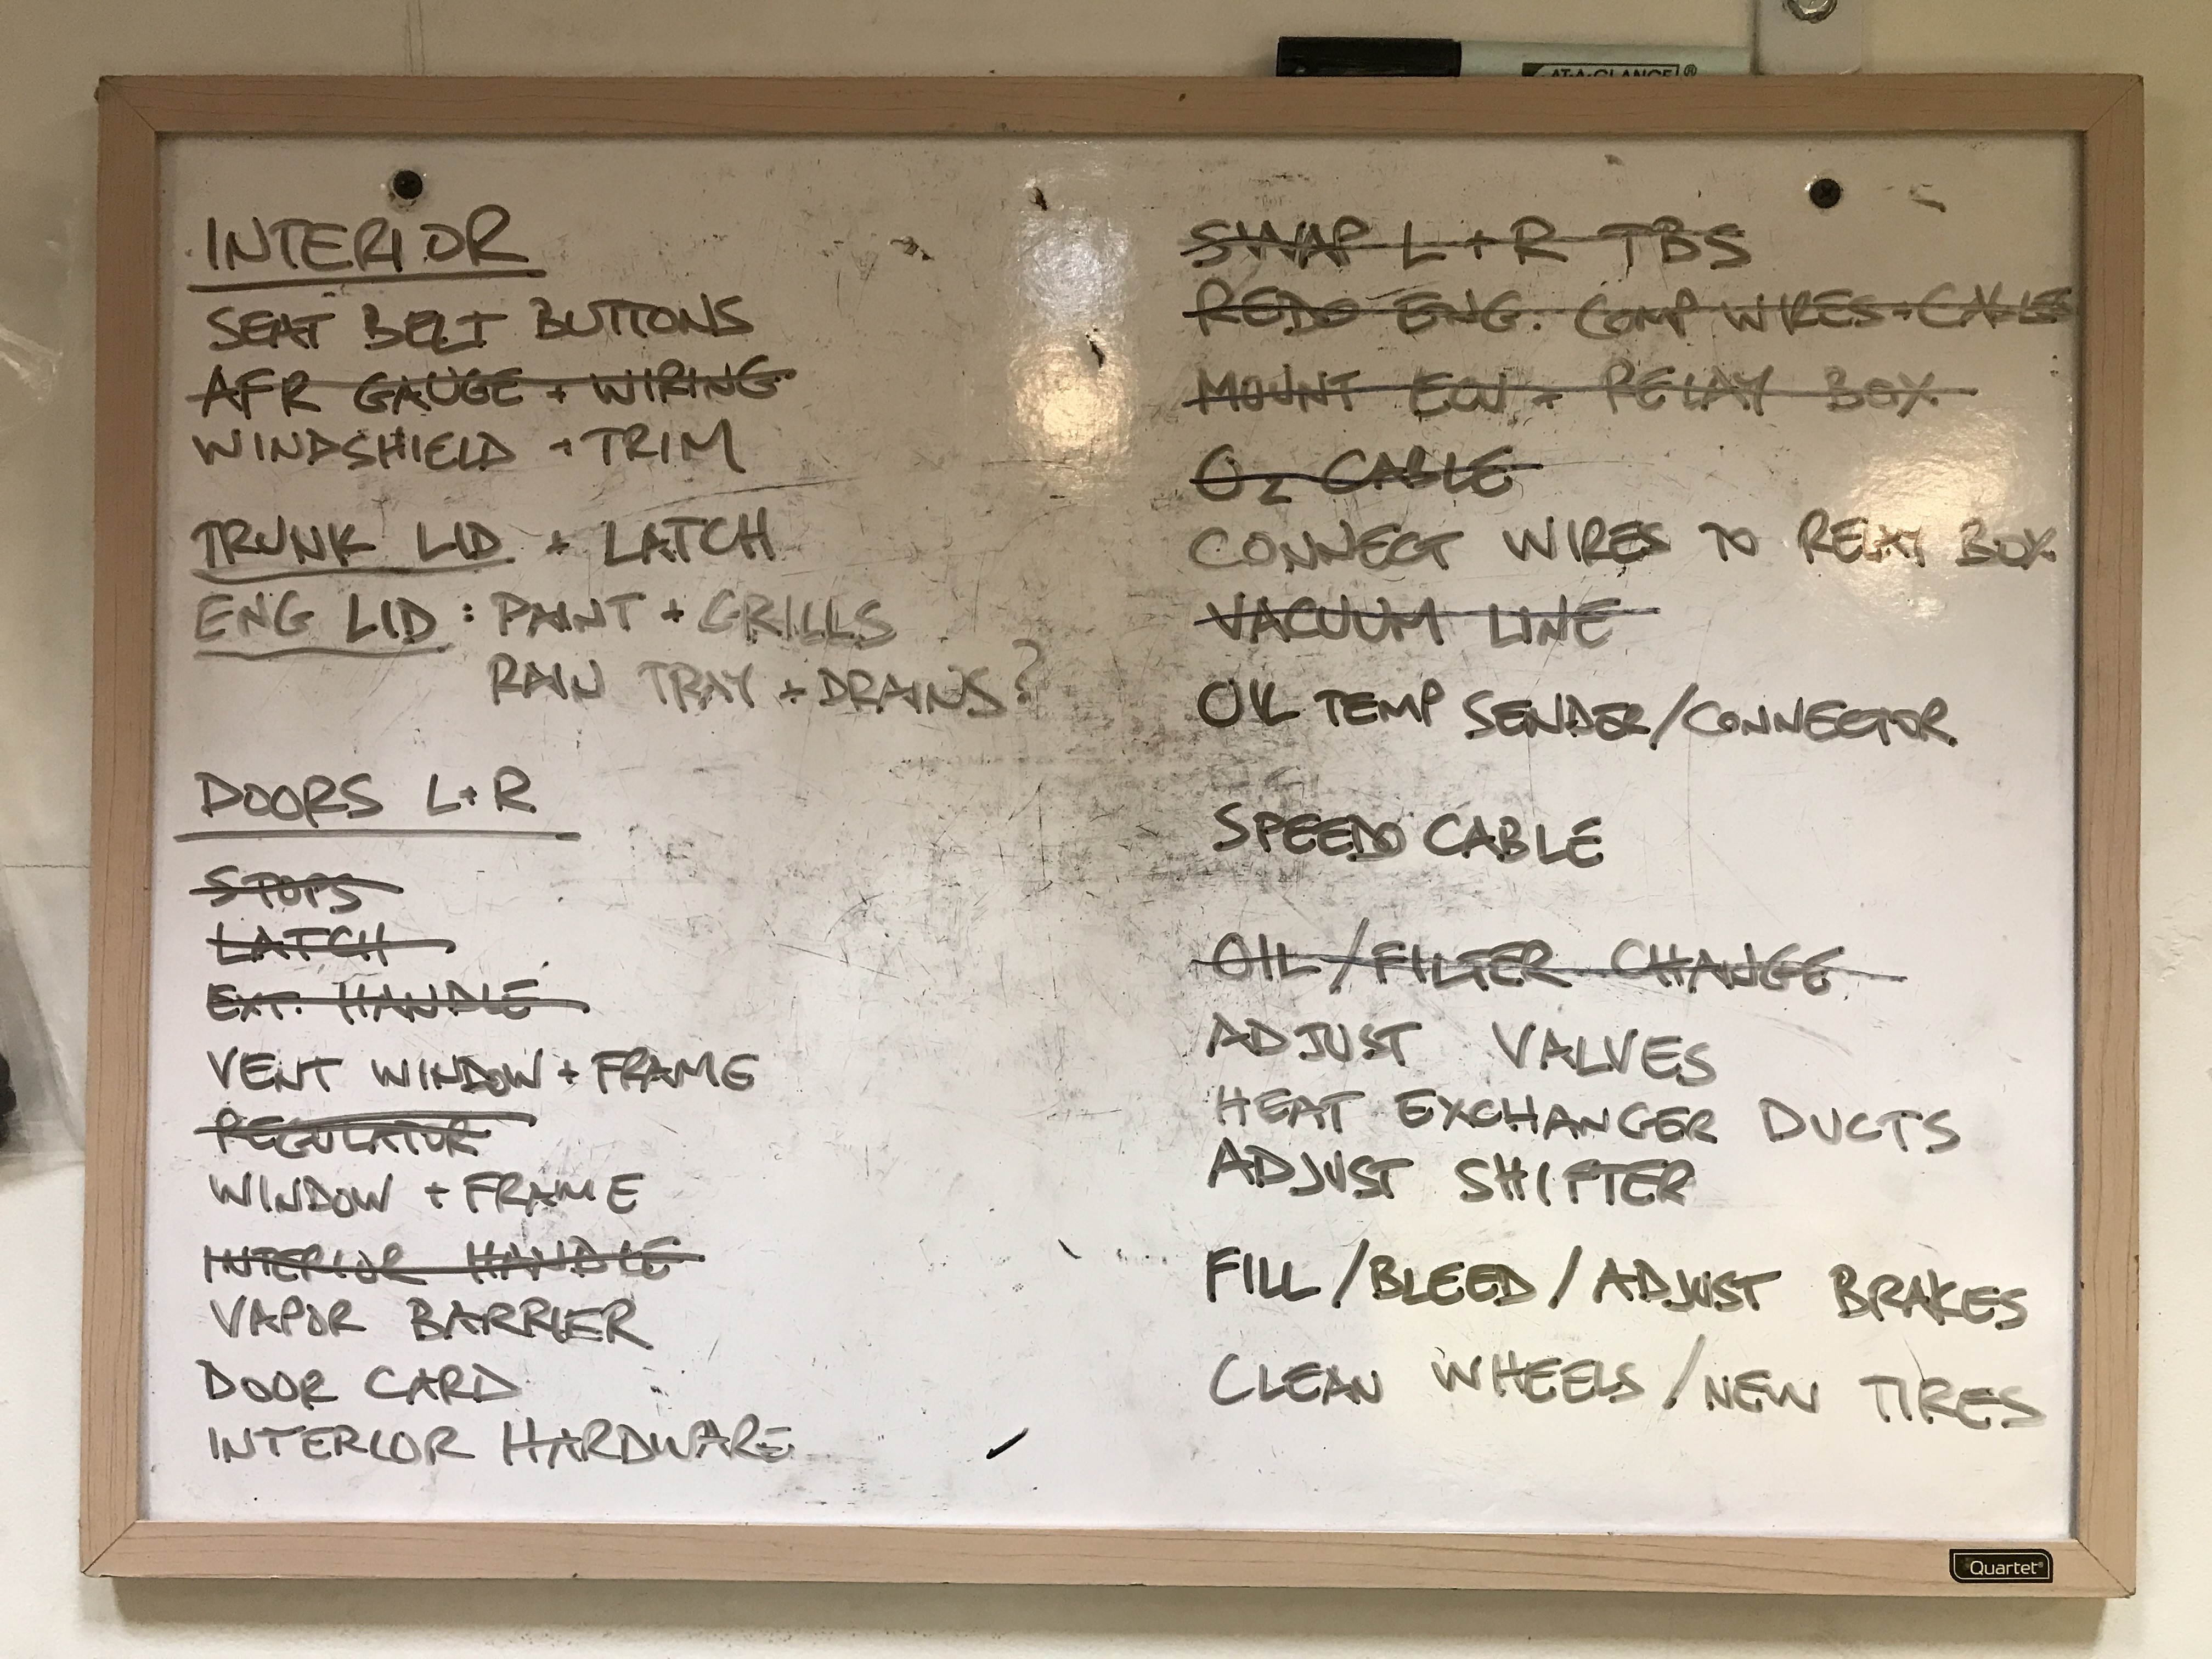 AT-A-GLANCE®
INTERIOR
SEAT BELT BUTTONS
AFR GAUGE + WIRING
WINDSHIELD + TRIM
TRUNK LID + LATCH
ENG LID : PAINT + GRILLS
RAIN TRAY + DRAINS?
DOORS L+R
STOPS
LATCH
EXT. HANDLE
VENT WINDOW + FRAME
REGULATOR
WINDOW + FRAME
INTERIOR HANDLE
VAPOR BARRIER
DOOR CARD
INTERIOR HARDWARE
SWAP L+R TBS
REDO ENG. COMP WIRES + CABLES
MOUNT ECU + RELAY BOX
O2 CABLE
CONNECT WIRES TO RELAY BOX
VACUUM LINE
OIL TEMP SENDER/CONNECTOR
SPEEDO CABLE
OIL/FILTER CHANGE
ADJUST VALVES
HEAT EXCHANGER DUCTS
ADJUST SHIFTER
FILL/BLEED/ADJUST BRAKES
CLEAN WHEELS/NEW TIRES
Quartet®